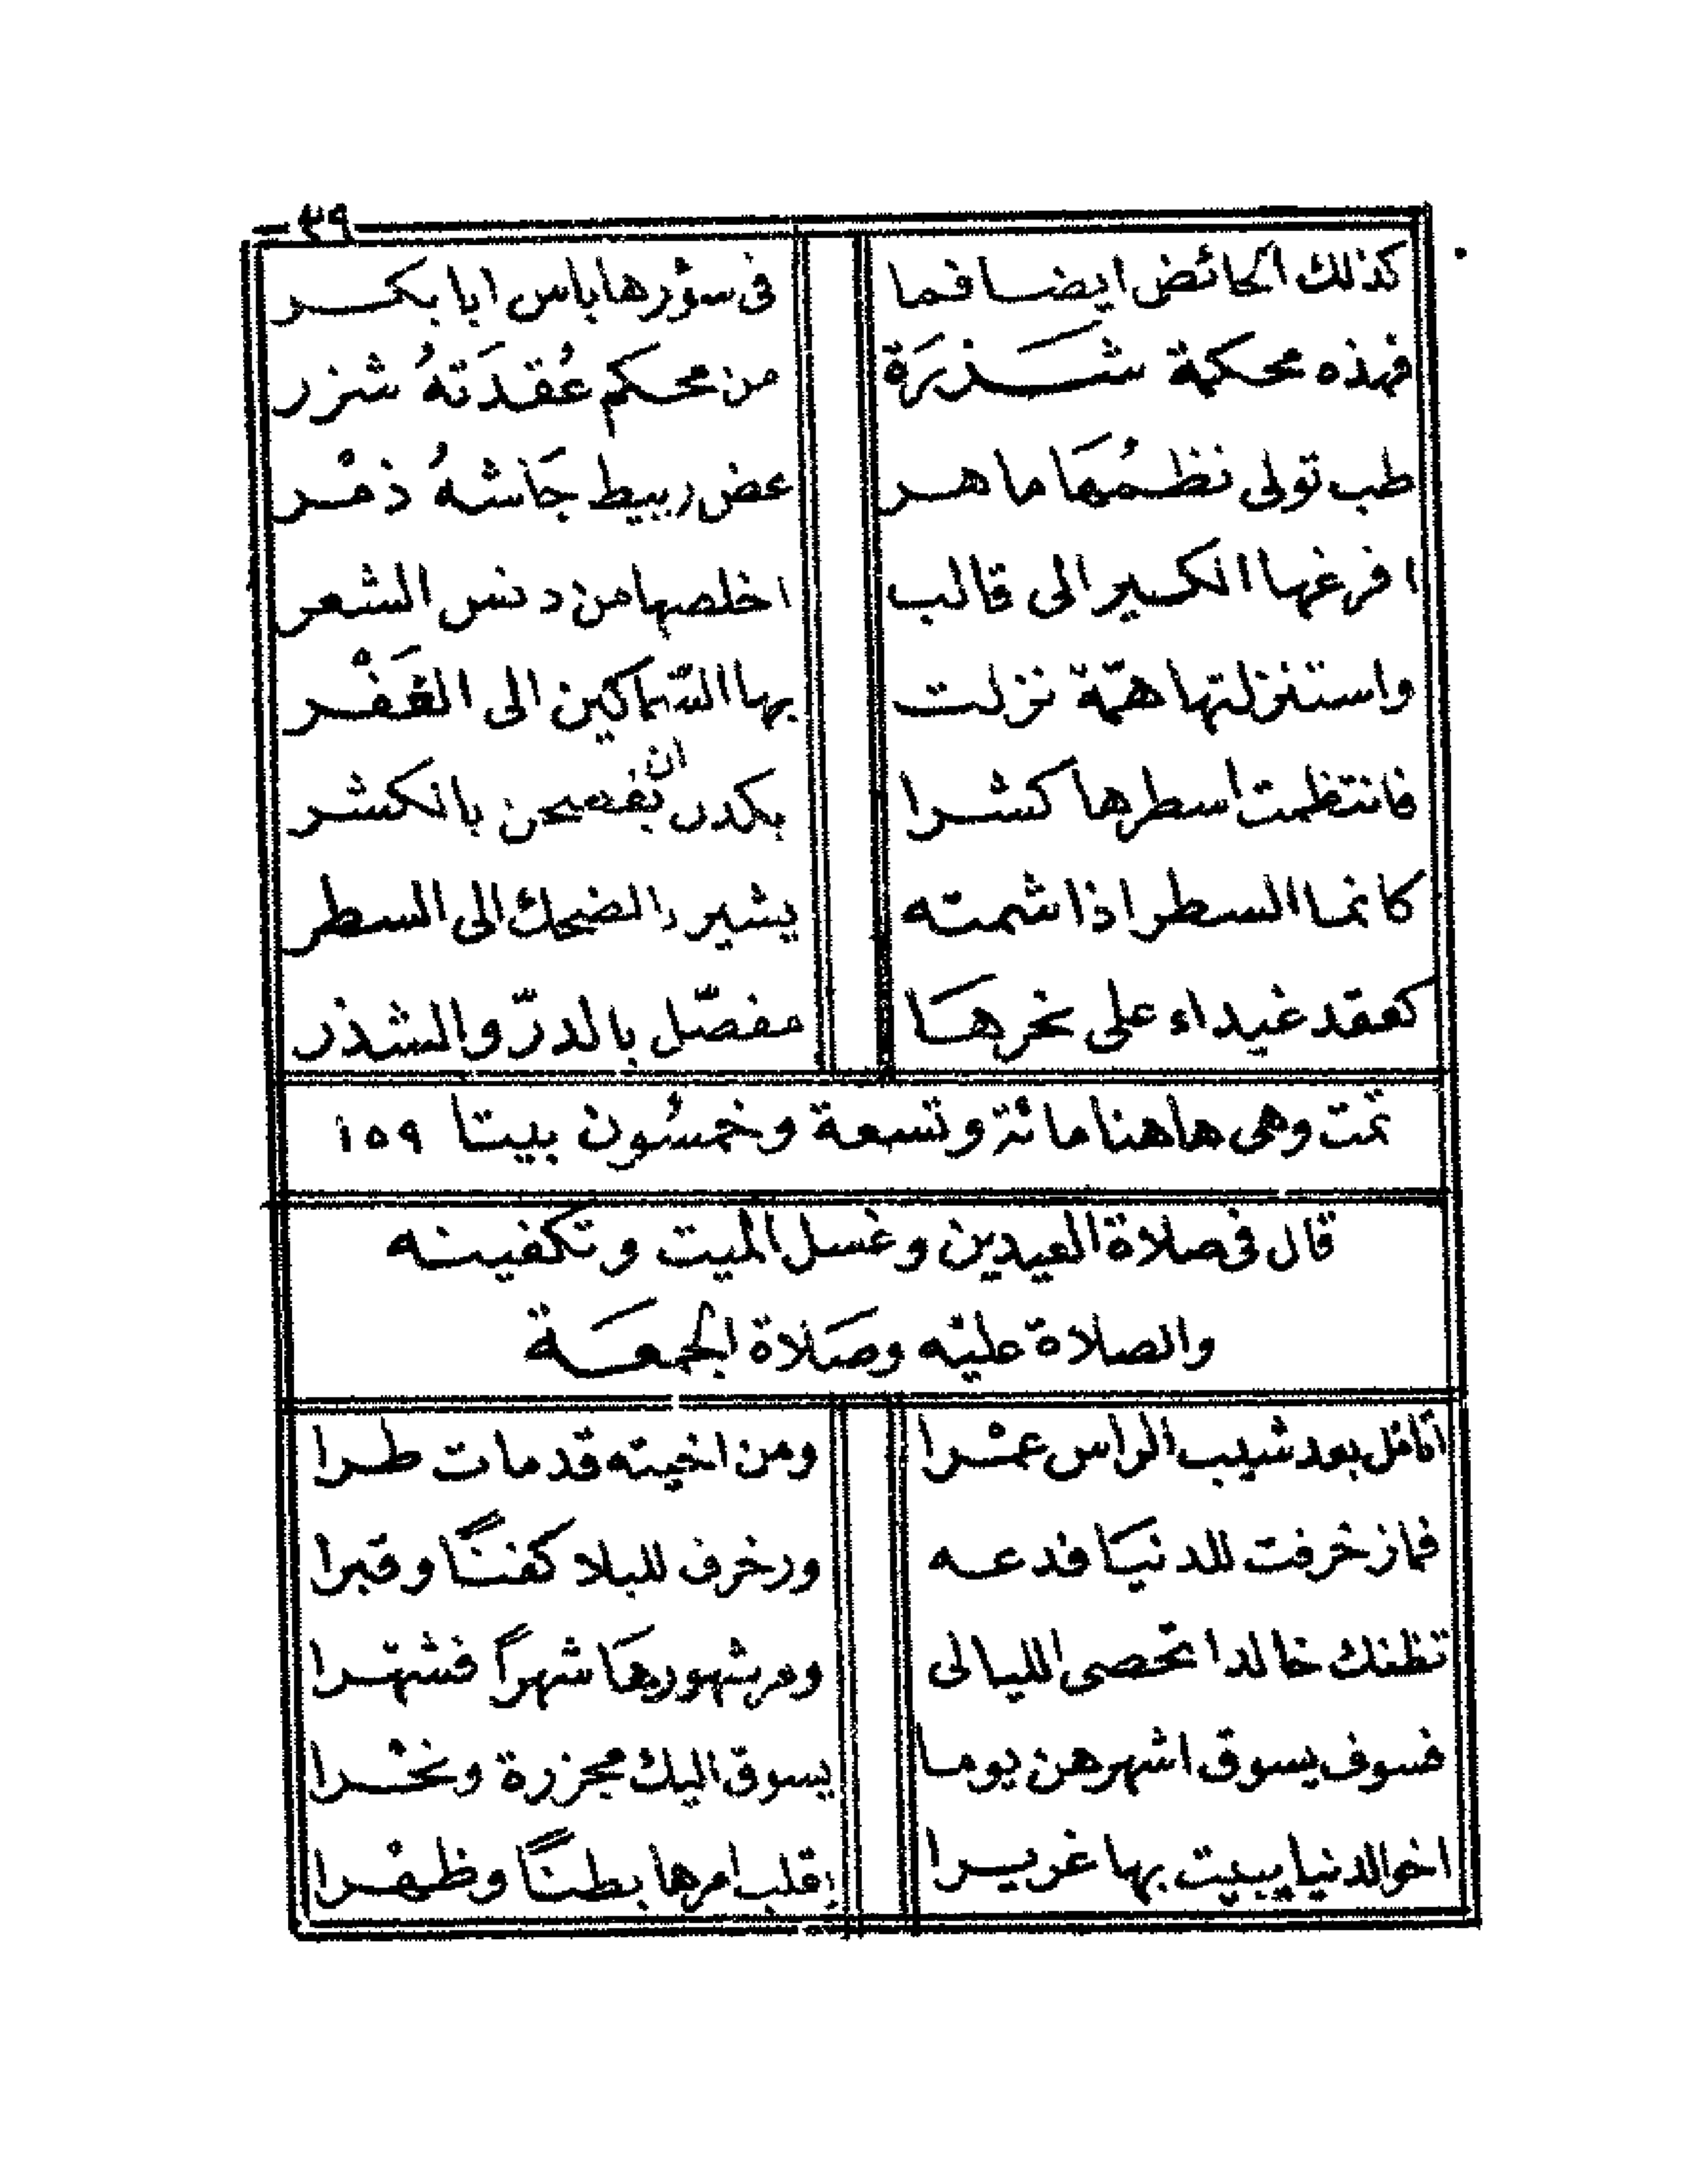 ٣٩
كذلك الحائض ايضا فما في سؤرها باس ابا بكر
فهذه محكمة شَذرَة من محكم عُقدَتهُ شزر
طب تولى نظمُهَا ماهر عض ربيط جَاشهُ ذمْر
افرغها الكير الى قالب اخلصها من دنس الشعر
واستنزلتها همّة نزلت بها السّماكين الى الغَفْر
فانتظمت اسطرها كشرا يكدن ان يفصحن بالكشر
كانما السطر اذا شمته يشير بالضحك الى السطر
كعقد غيداء على نحرهَا مفصّل بالدرّ والشذر
تمت وهي هاهنا مائة وتسعة وخمسُون بيتا ١٥٩
قال في صلاة العيدين وغسل الميت وتكفينه
والصلاة عليْه وصَلاة الجمعَة
اتامل بعد شيب الراس عمْرا ومن اخيته قد مات طرا
فما زخرفت للدنيَا فدعه وزخرف للبلا كفنًا وقبرا
تظنك خالدا تحصى الليالى ومر شهورهَا شهراً فشهْرا
فسوف يسوق اشهرهن يوما يسوق اليك مجزرة ونحْرا
اخو الدنيا يبيت بها غريرا يقلب امرها بطنًا وظهْرا